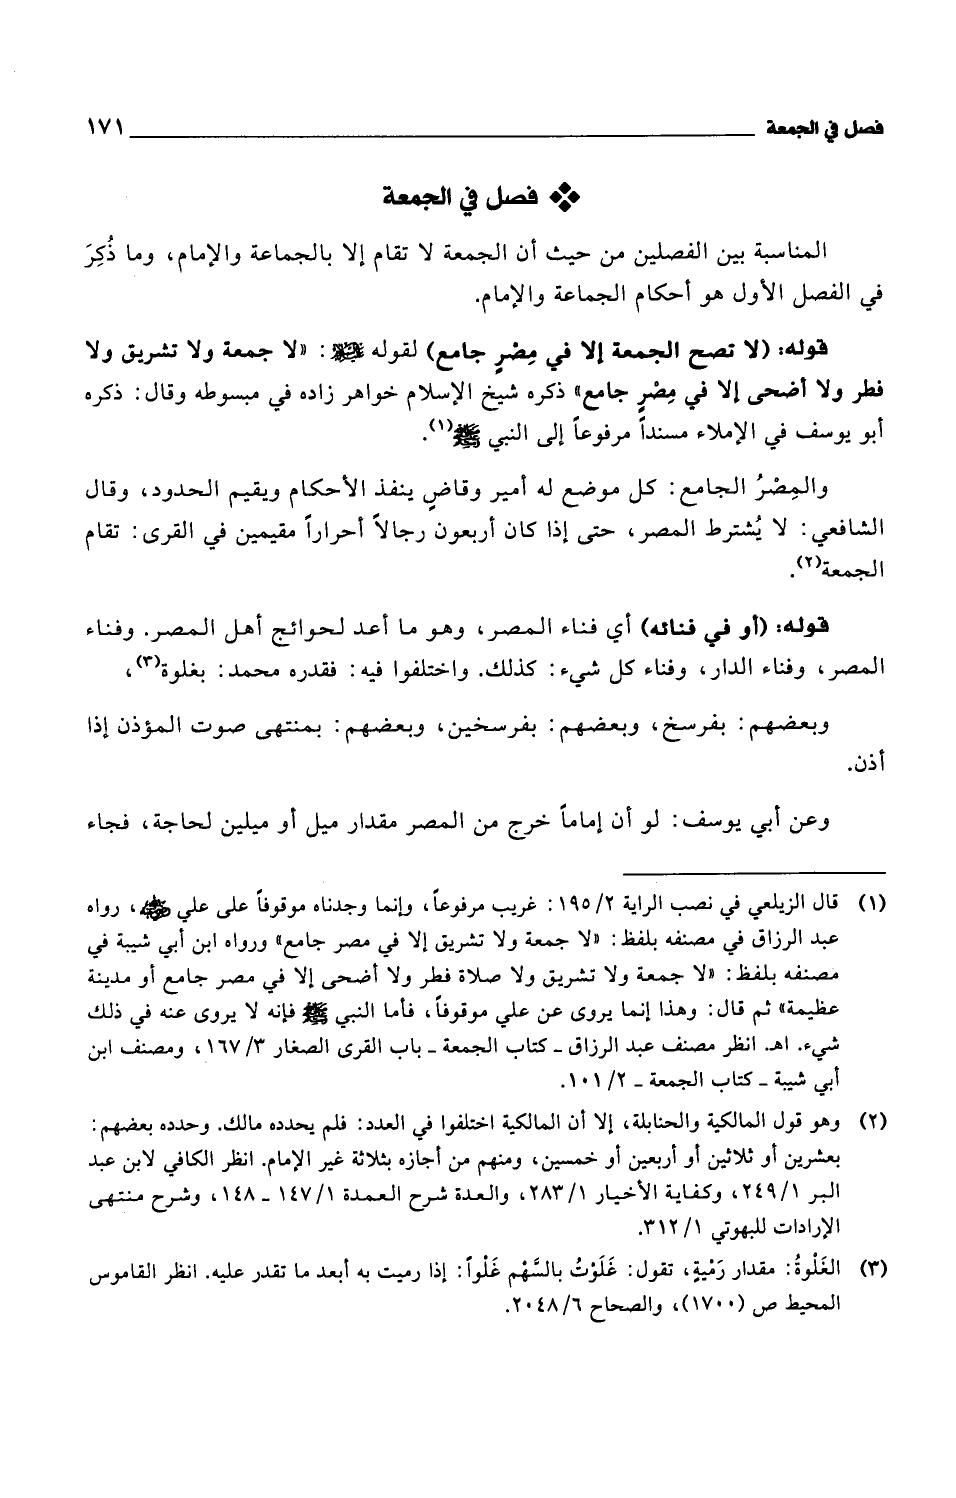 فصل في الجمعة ١٧١
❖ فصل في الجمعة
المناسبة بين الفصلين من حيث أن الجمعة لا تقام إلا بالجماعة والإمام، وما ذُكِرَ
في الفصل الأول هو أحكام الجماعة والإمام.
قوله: (لا تصح الجمعة إلا في مِصْرٍ جامع) لقوله ﷺ: «لا جمعة ولا تشريق ولا
فطر ولا أضحى إلا في مِصْرٍ جامع» ذكره شيخ الإسلام خواهر زاده في مبسوطه وقال: ذكره
أبو يوسف في الإملاء مسنداً مرفوعاً إلى النبي ﷺ(١).
والمِصْرُ الجامع: كل موضع له أمير وقاضٍ ينفذ الأحكام ويقيم الحدود، وقال
الشافعي: لا يُشترط المصر، حتى إذا كان أربعون رجالاً أحراراً مقيمين في القرى: تقام
الجمعة(٢).
قوله: (أو في فنائه) أي فناء المصر، وهو ما أعد لحوائج أهل المصر. وفناء
المصر، وفناء الدار، وفناء كل شيء: كذلك. واختلفوا فيه: فقدره محمد: بغلوة(٣)،
وبعضهم: بفرسخ، وبعضهم: بفرسخين، وبعضهم: بمنتهى صوت المؤذن إذا
أذن.
وعن أبي يوسف: لو أن إماماً خرج من المصر مقدار ميل أو ميلين لحاجة، فجاء
(١) قال الزيلعي في نصب الراية ١٩٥/٢: غريب مرفوعاً، وإنما وجدناه موقوفاً على علي رضي الله عنه، رواه
عبد الرزاق في مصنفه بلفظ: «لا جمعة ولا تشريق إلا في مصر جامع» ورواه ابن أبي شيبة في
مصنفه بلفظ: «لا جمعة ولا تشريق ولا صلاة فطر ولا أضحى إلا في مصر جامع أو مدينة
عظيمة» ثم قال: وهذا إنما يروى عن علي موقوفاً، فأما النبي ﷺ فإنه لا يروى عنه في ذلك
شيء. اهـ. انظر مصنف عبد الرزاق - كتاب الجمعة - باب القرى الصغار ١٦٧/٣، ومصنف ابن
أبي شيبة - كتاب الجمعة - ١٠١/٢.
(٢) وهو قول المالكية والحنابلة، إلا أن المالكية اختلفوا في العدد: فلم يحدده مالك. وحدده بعضهم:
بعشرين أو ثلاثين أو أربعين أو خمسين، ومنهم من أجازه بثلاثة غير الإمام. انظر الكافي لابن عبد
البر ٢٤٩/١، وكفاية الأخيار ٢٨٣/١، والعدة شرح العمدة ١٤٧/١ - ١٤٨، وشرح منتهى
الإرادات للبهوتي ٣١٢/١.
(٣) الغَلْوةُ: مقدار رَمْيةٍ، تقول: غَلَوْتُ بالسَّهْم غَلْواً: إذا رميت به أبعد ما تقدر عليه. انظر القاموس
المحيط ص (١٧٠٠)، والصحاح ٢٠٤٨/٦.